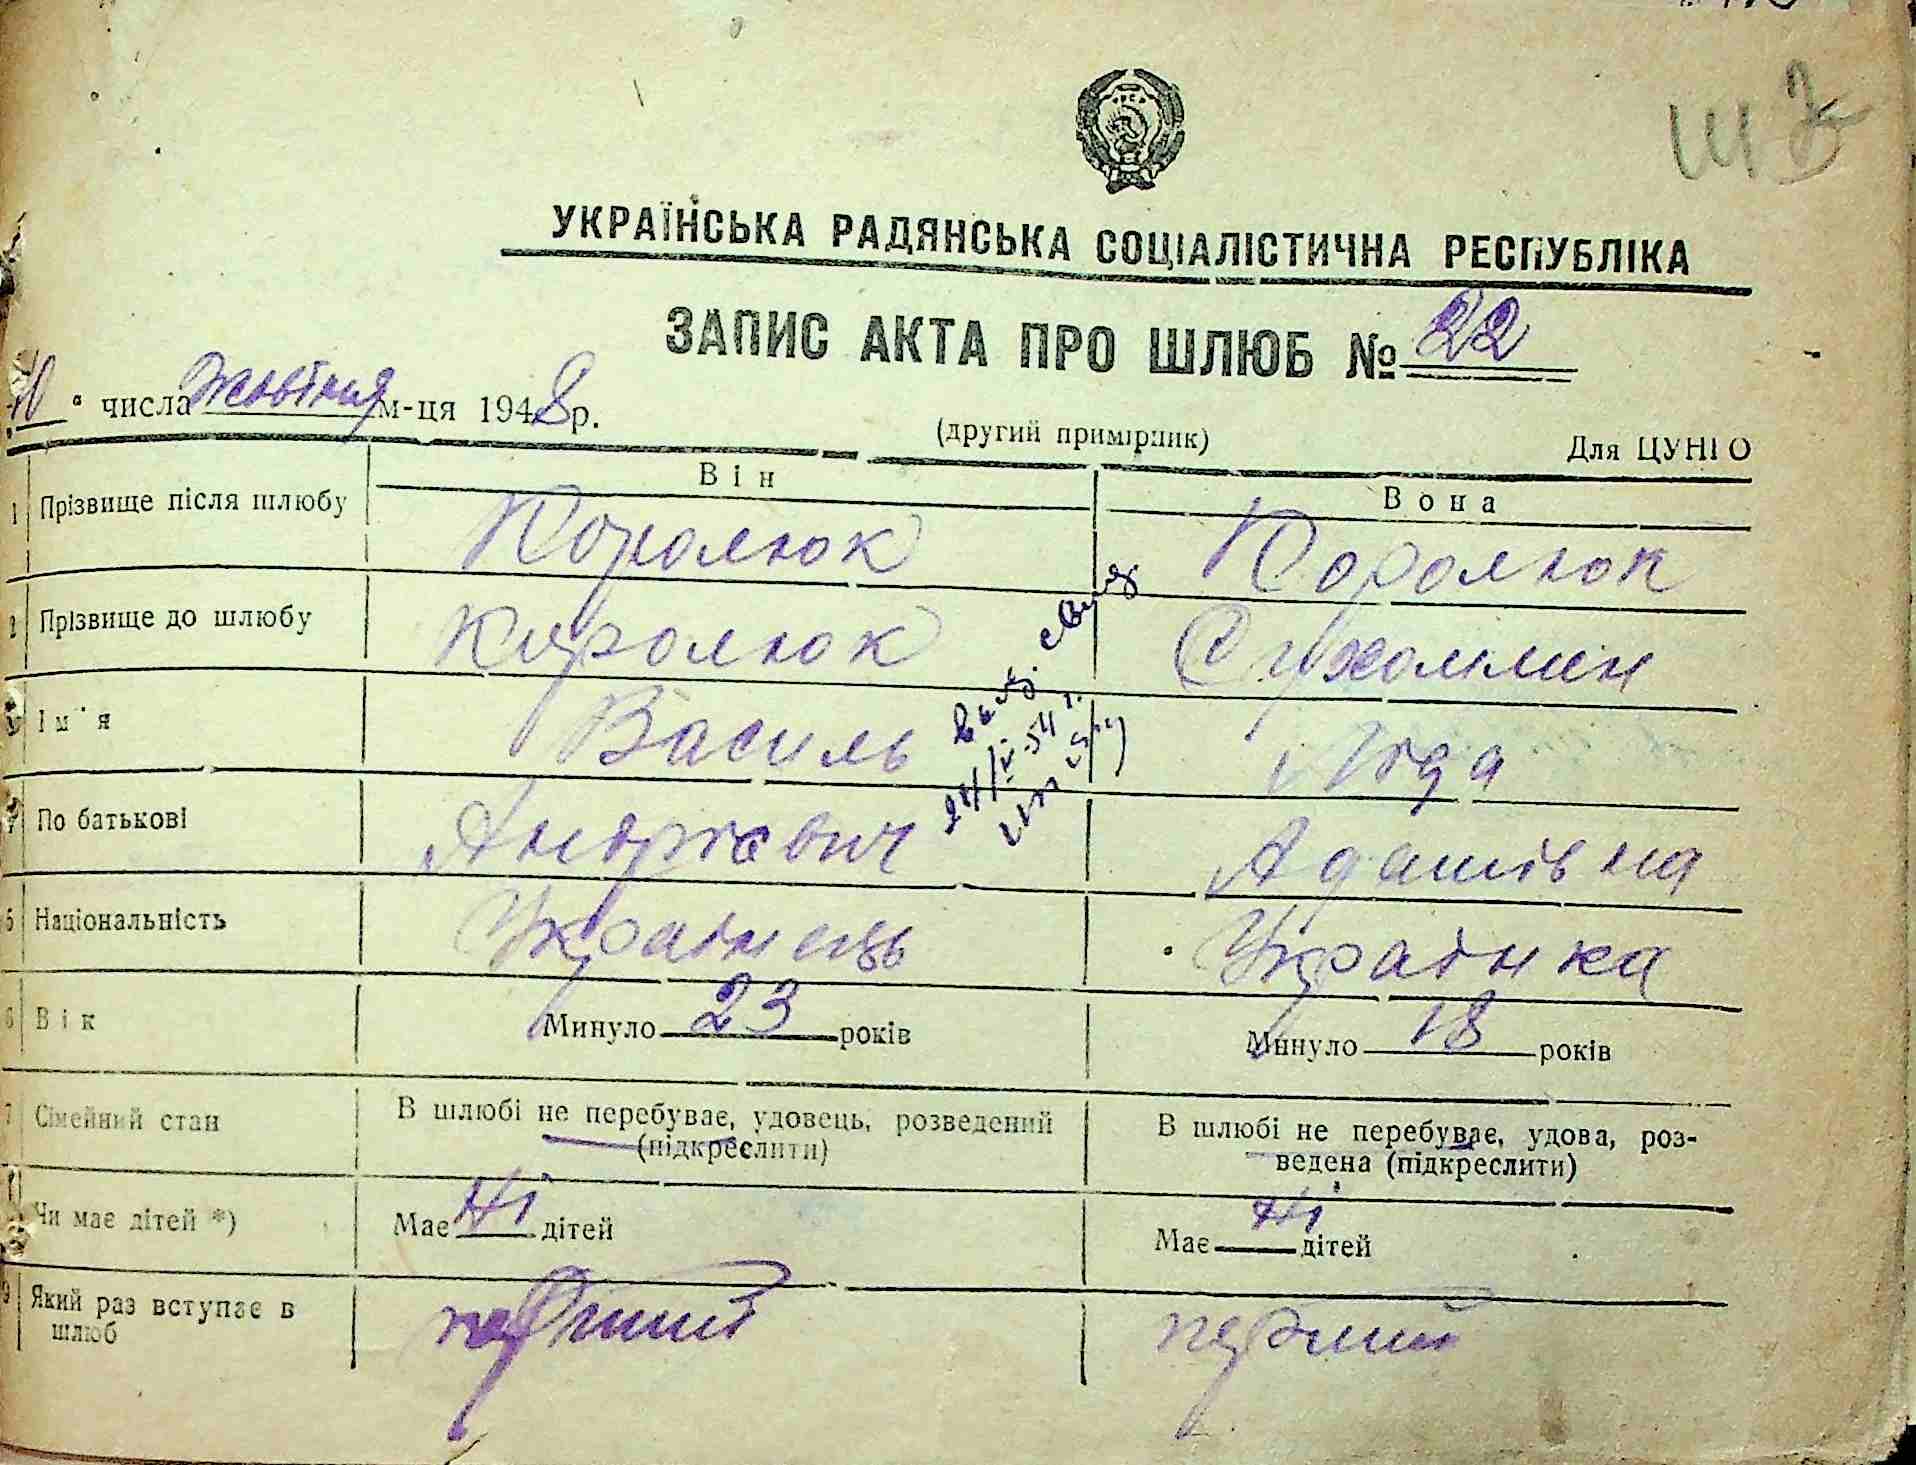 УКРАЇНСЬКА РАДЯНСЬКА СОЦІАЛІСТИЧНА РЕСПУБЛІКА
ЗАПИС АКТА ПРО ШЛЮБ № 22
10 числа Жовтня м-ця 1948 р.
(другий примірник) Для ЦУНГО
Він Вона
1 Прізвище після шлюбу Королюк Королюк
2 Прізвище до шлюбу Королюк Сухомлин
Ім'я Василь Ліда
По батькові Андрієвич Адамівна
5 Національність Українець Українка
6 Вік Минуло 23 років Минуло 18 років
7 Сімейний стан В шлюбі не перебуває, удовець, розведений (підкреслити) В шлюбі не перебуває, удова, роз-
ведена (підкреслити)
Чи має дітей *) Має Ні дітей Має Ні дітей
9 Який раз вступає в шлюб перший перший